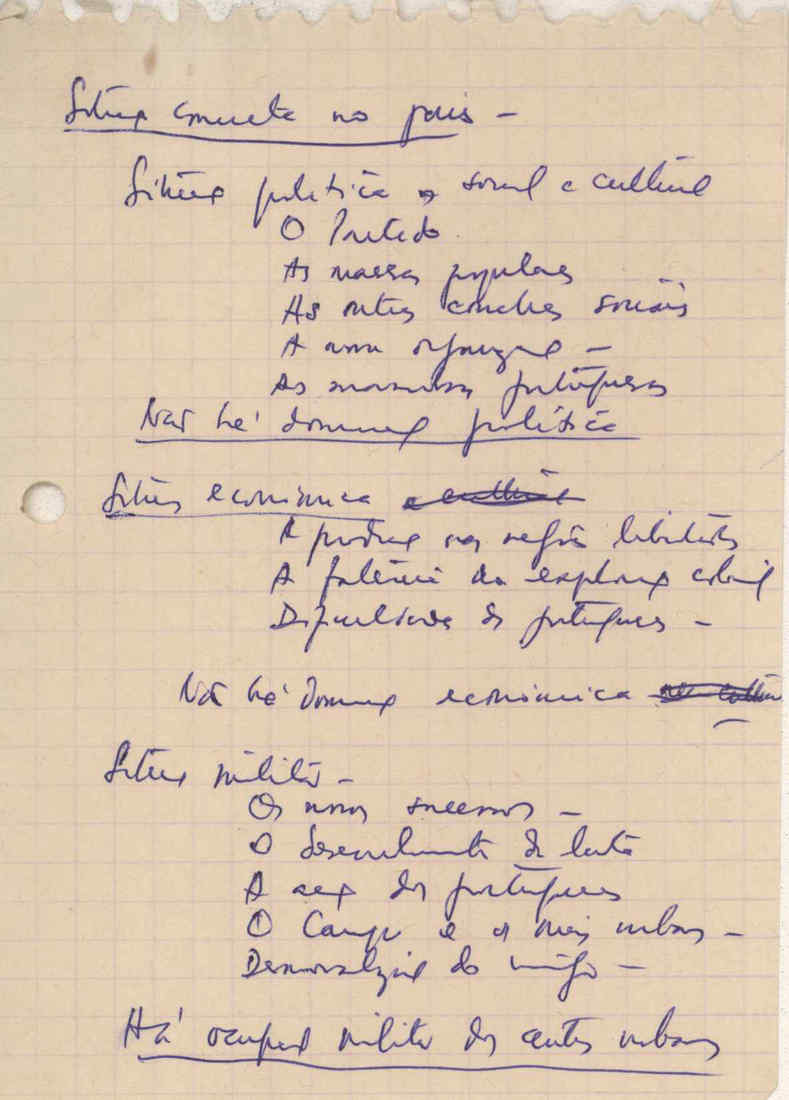 Situação concreta no país –
Situação política, social e cultural
O Partido
As massas populares
As outras camadas sociais
A nova organização –
As manobras portuguesas
Não há domínio político
Situação económica
A produção nas regiões libertadas
A falência da exploração colonial
Dificuldades dos portugueses –
Não há domínio económico
Situação militar –
Os nossos sucessos –
O desenvolvimento da luta
A acção dos portugueses
O Campo e os meios urbanos –
Desmoralização do inimigo –
Há ocupação militar dos centros urbanos